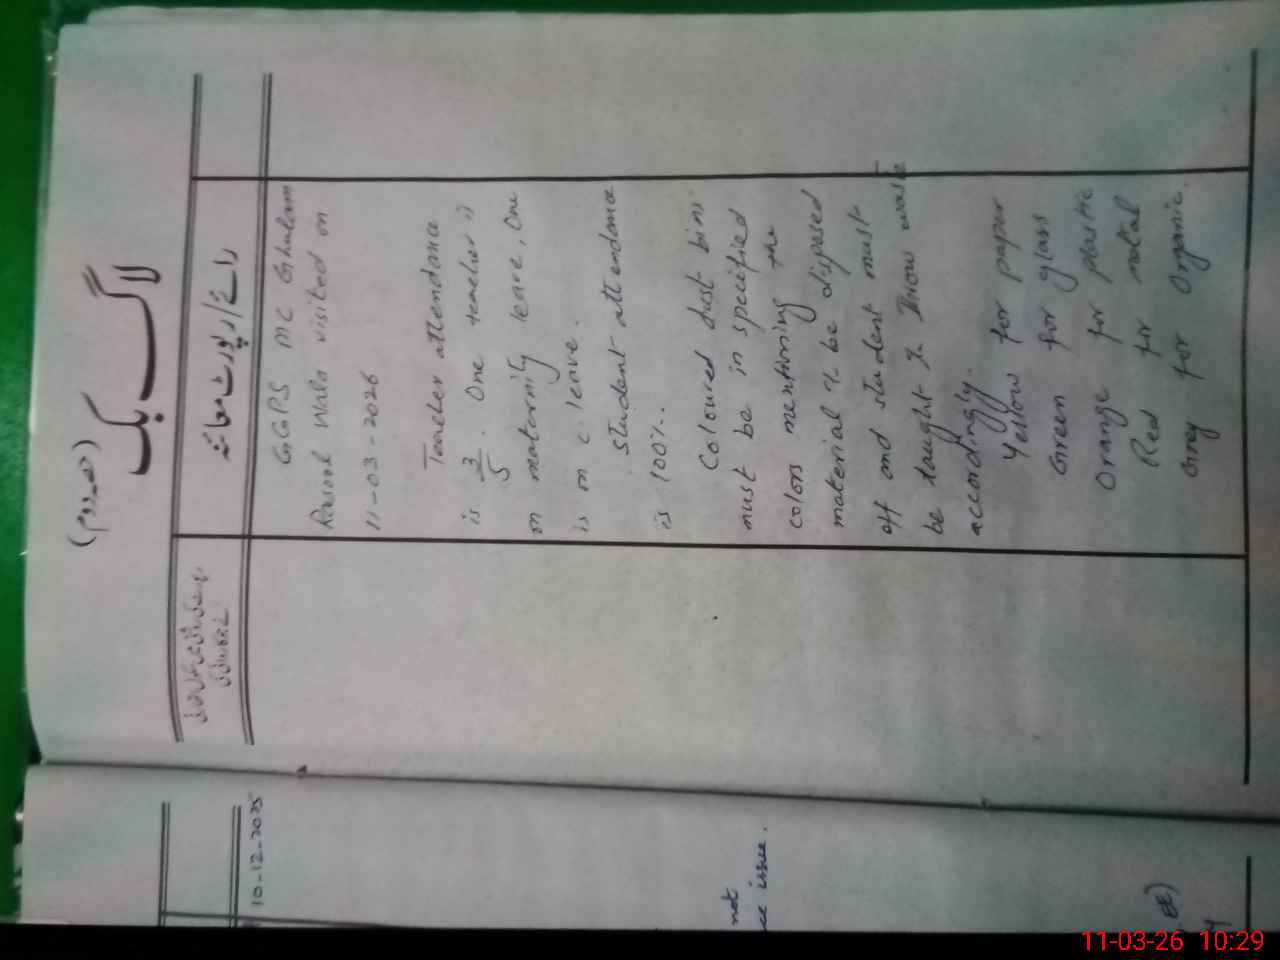 (حصہ دوم)
لاگ بک
رائے / رپورٹ معائنہ
GGPS MC Ghulam
Rasool Wala visited on
11-03-2026
Teacher attendance
is 3/5. One teacher is
on maternity leave, One
is on c. leave.
Student attendance
is 100%.
Coloured dust bins
must be in specified
colors mentioning the
material to be disposed
off and student must
be taught to throw waste
accordingly.
Yellow for paper
Green for glass
Orange for plastic
Red for metal
Grey for Organic.
10-12-2025
not
issue.
11-03-26 10:29